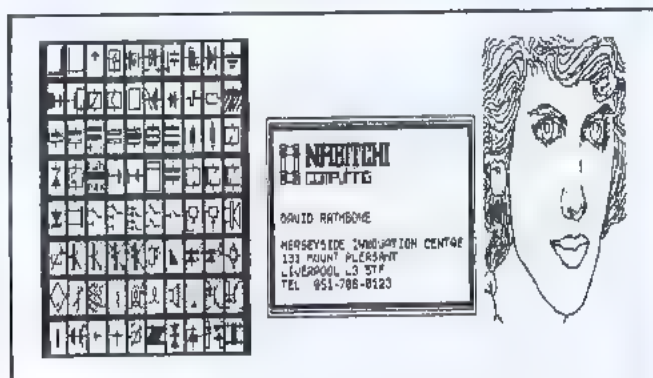 COMPUTING
DAVID RATHBONE
MERSEYSIDE INNOVATION CENTRE
131 MOUNT PLEASANT
LIVERPOOL L3 5TF
TEL 051-708-0123